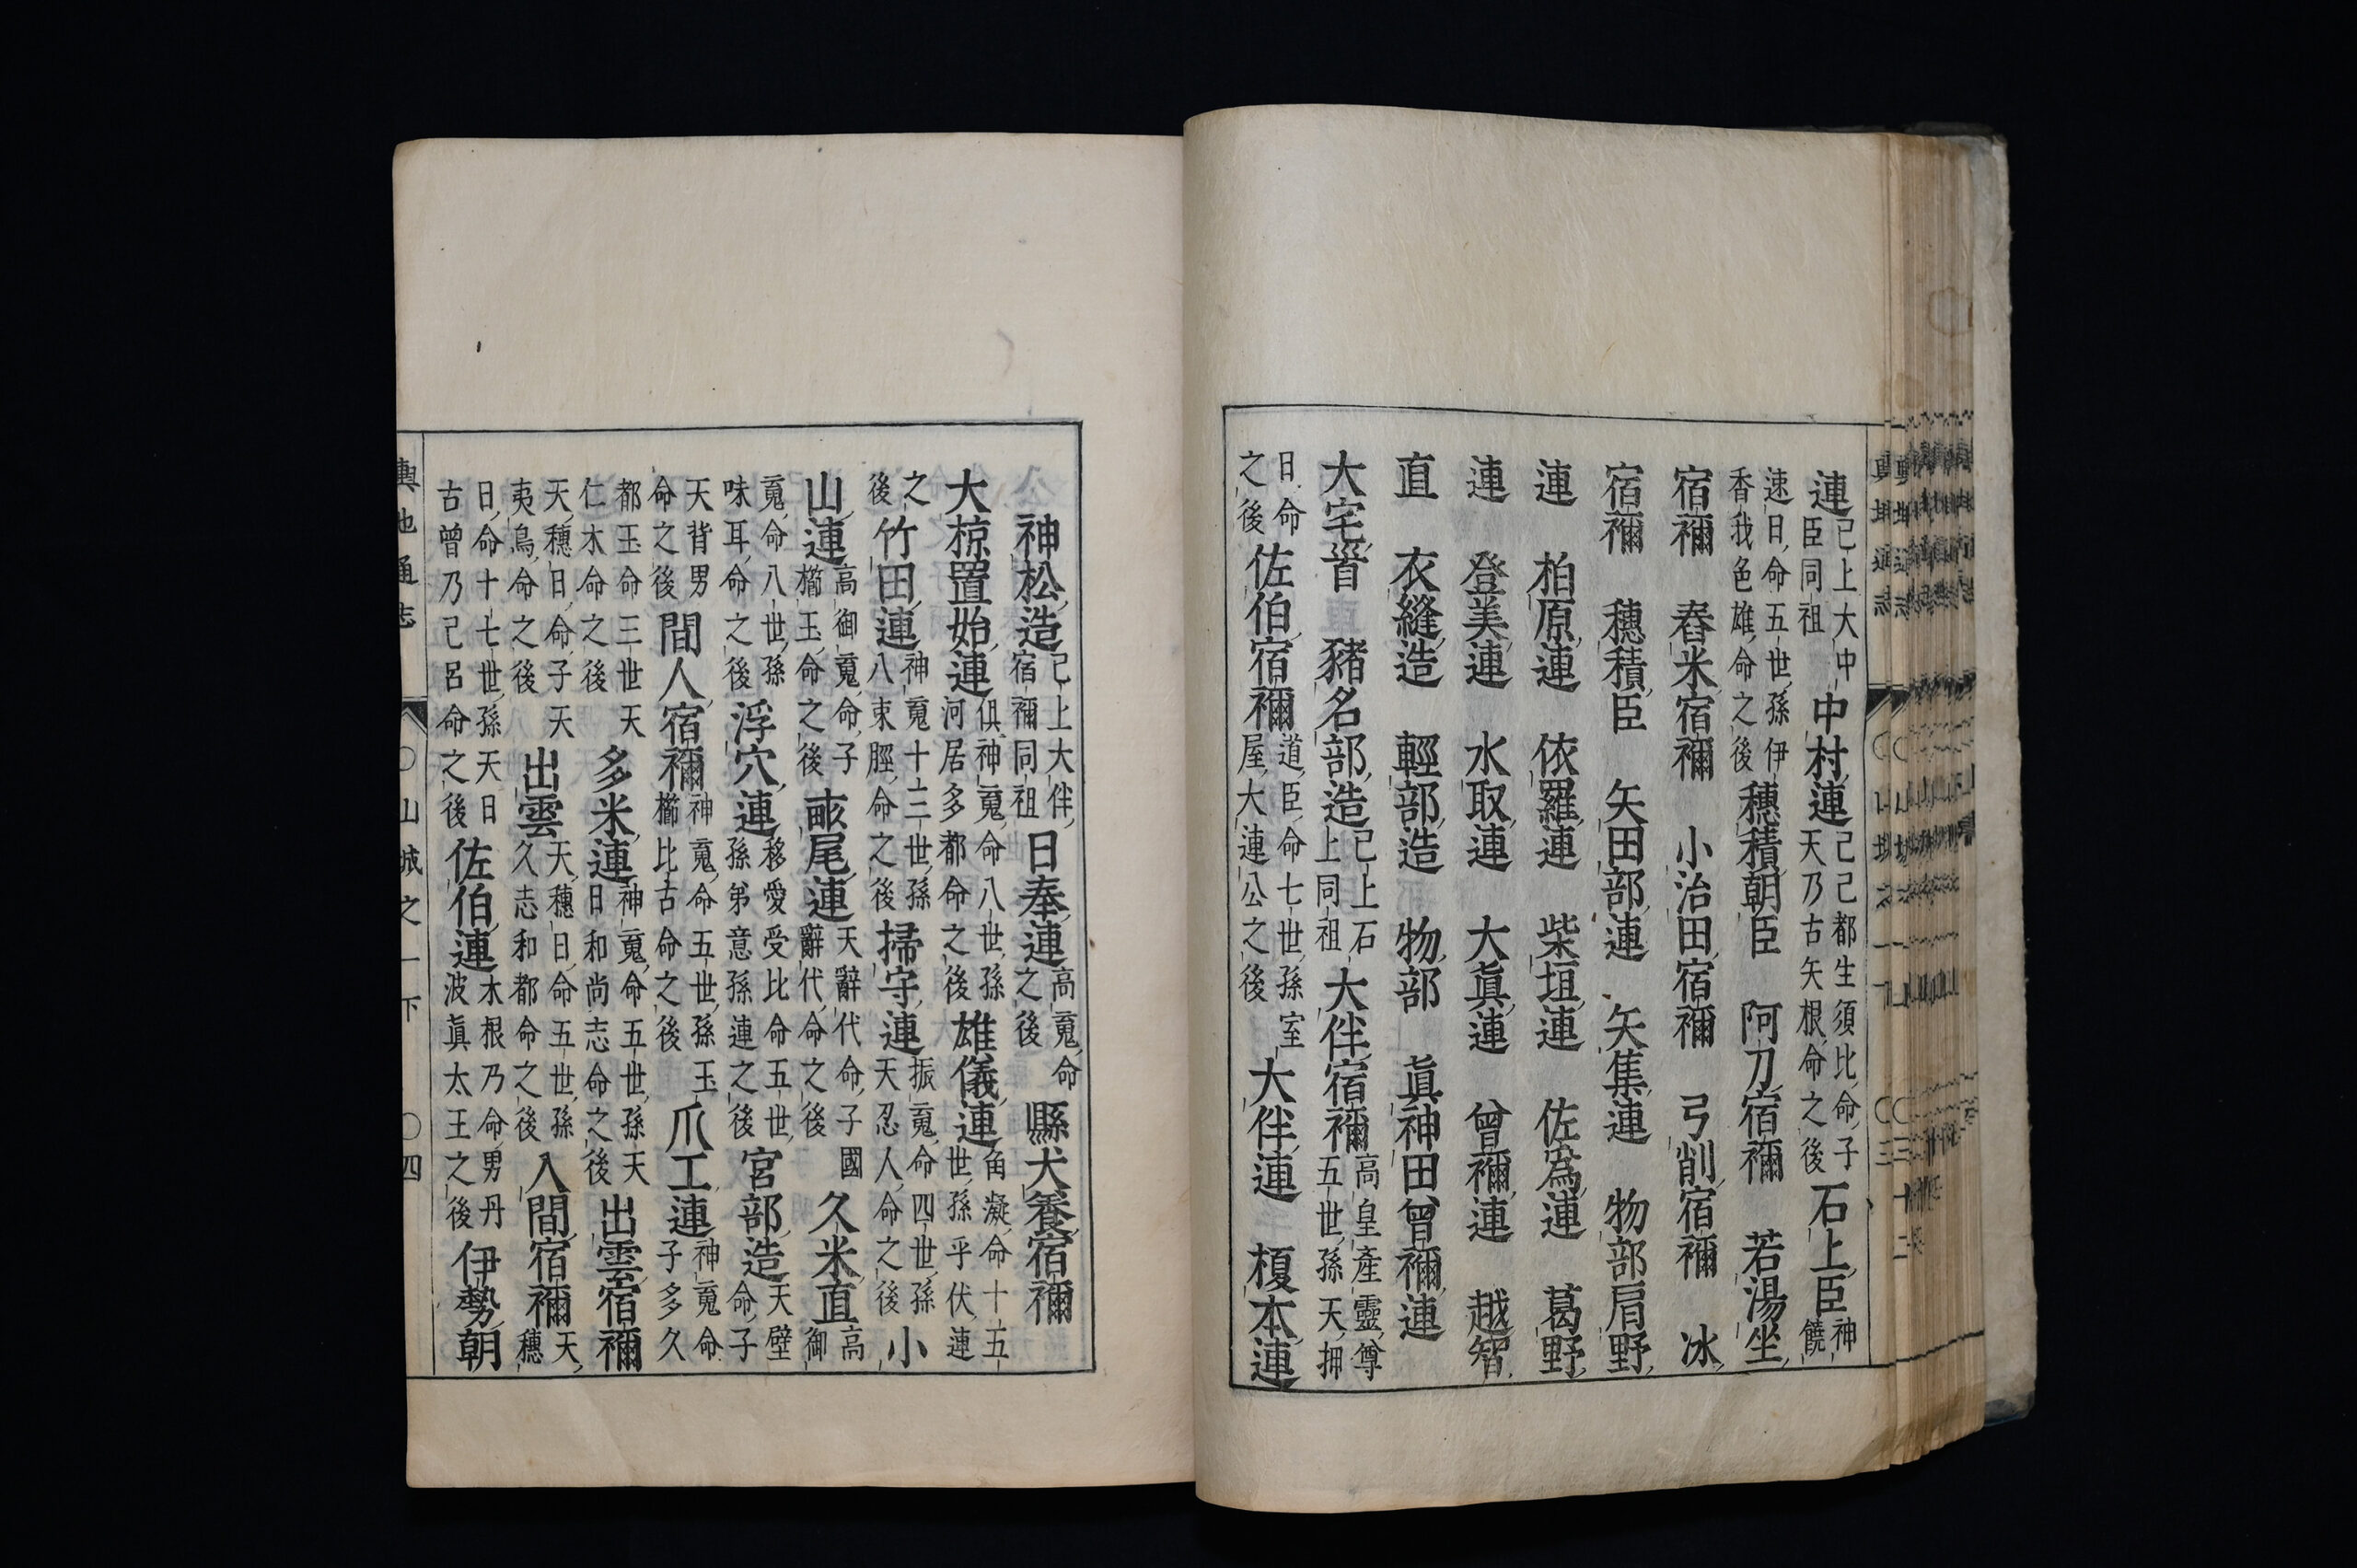 連已上大中臣同祖 中村連己己都生須比命子天乃古矢根命之後 石上臣神饒
速日命五世孫伊香我色雄命之後 穗積朝臣 阿刀宿禰 若湯坐
宿禰 舂米宿禰 小治田宿禰 弓削宿禰 氷
宿禰 穗積臣 矢田部連 矢集連 物部肩野
連 柏原連 依羅連 柴垣連 佐為連 葛野
連 登美連 水取連 大眞連 曾禰連 越智
直 衣縫造 輕部造 物部 眞神田曾禰連
大宅首 豬名部造已上石上同祖 大伴宿禰高皇產靈尊五世孫天押
日命之後 佐伯宿禰道臣命七世孫室屋大連公之後 大伴連 榎本連
神松造已上大伴宿禰同祖 日奉連高䰟命之後 縣犬養宿禰
大椋置始連俱神䰟命八世孫河居多都命之後 雄儀連角凝命十五世孫乎伏連
之後 竹田連神䰟十三世孫八束脛命之後 掃守連振䰟命四世孫天忍人命之後 小
山連高御䰟命子櫛玉命之後 畝尾連天辭代命子國辭代命之後 久米直高御
䰟命八世孫味耳命之後 浮穴連移愛受比命五世孫弟意孫連之後 宮部造天壁命子
天背男命之後 間人宿禰神䰟命五世孫玉櫛比古命之後 爪工連神䰟命子多久
都玉命三世天仁木命之後 多米連神䰟命五世孫天日和尚志命之後 出雲宿禰
天穗日命子天夷鳥命之後 出雲天穗日命五世孫久志和都命之後 入間宿禰天穗
日命十七世孫天日古曾乃己呂命之後 佐伯連木根乃命男丹波眞太王之後 伊勢朝
輿地通志 〇山城之一下 〇四